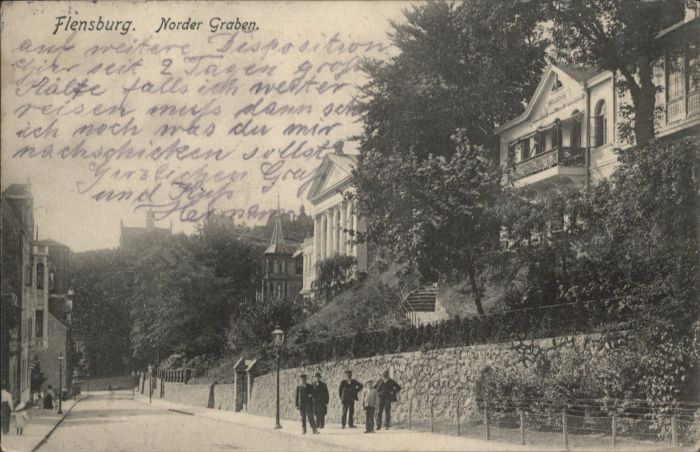 Flensburg. Norder Graben.
auf weitere Desposition
hier seit 2 Tagen groß
Kälte falls ich weiter
reisen muß dann sch
ich noch was du mir
nachschicken sollst
Herzlichen Gruß
und Kuß
Hermann